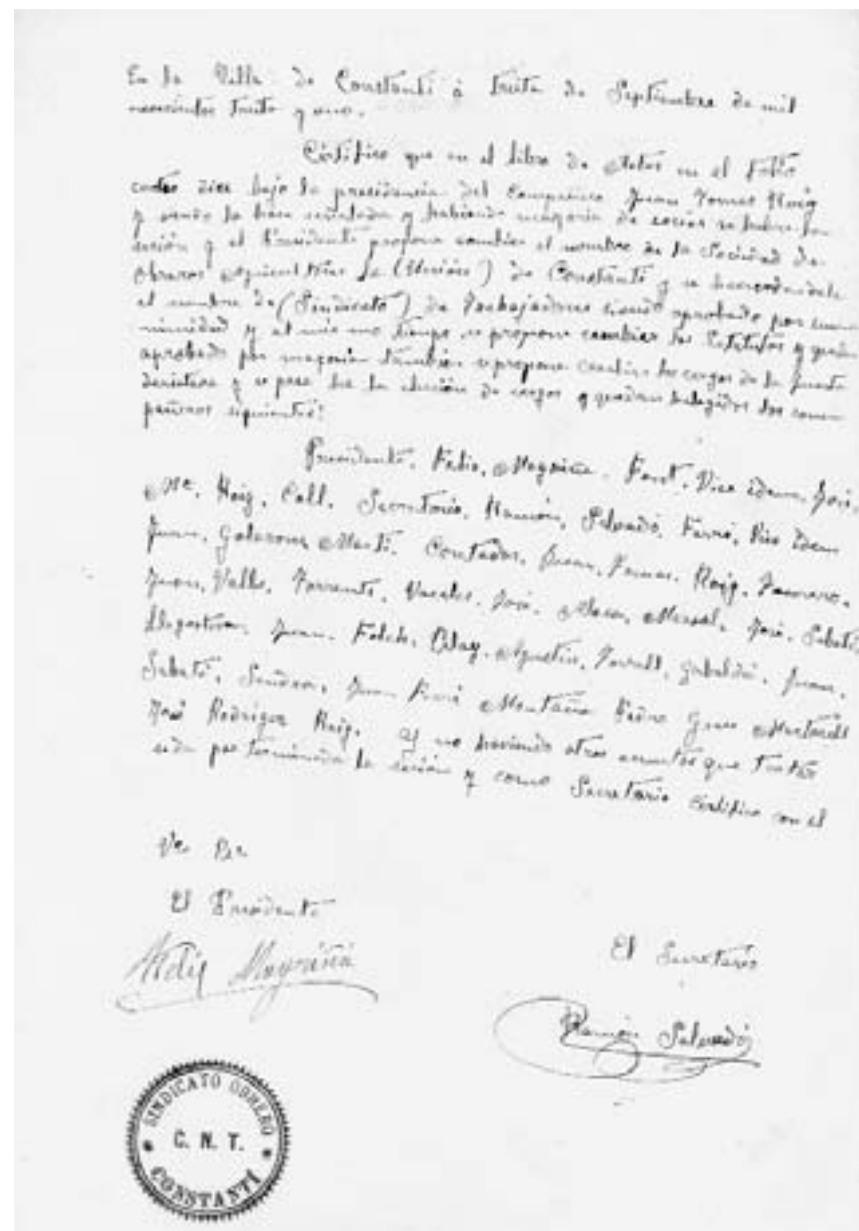 En la Villa de Constantí á treita de Septiembre de mil
novecientos treita y uno.
Certifico que en el libro de Actas en el folio
cuatro dice bajo la presidencia del Compañero Juan Tomas Roig
y siendo la hora señalada y habiendo mayoria de socios se habre la
sesión y el Presidente propone cambiar el nombre de la Sociedad de
obreros Agricultores la (Unión) de Constantí y se
el nombre de (Sindicato) de Trabajadores siendo aprobado por una
nimidad y al mismo tiempo se propone cambiar los Estatutos y queda
aprobado por mayoria tambien se propone cambiar los cargos de la junta
directiva y se pasa ha la elección de cargos y quedan helegidos los com
pañeros siguientes:
Presidente, Felix, Magriña, Font, Vice idem, José,
Mª, Roig, Coll, Secretario, Ramón, Salvadó, Ferré, Vice idem
Juan, Martí, Contador, Juan, Tomas, Roig, Tesorero,
Juan, Valls, Torrents, Vocales, José, José, Sabaté,
Juan, Folch, Agustin, Juan,
Sabaté, Juan Ferré Montaña Pedro Martorell
José Rodriguez Roig, Y no haviendo otros asuntos que tratar
se da por terminada la sesión y como Secretario Certifico con el
Vº Bº
El Presidente
El Secretario
Felix Magriñá
Ramón Salvadó
SINDICATO OBRERO
C. N. T.
CONSTANTÍ